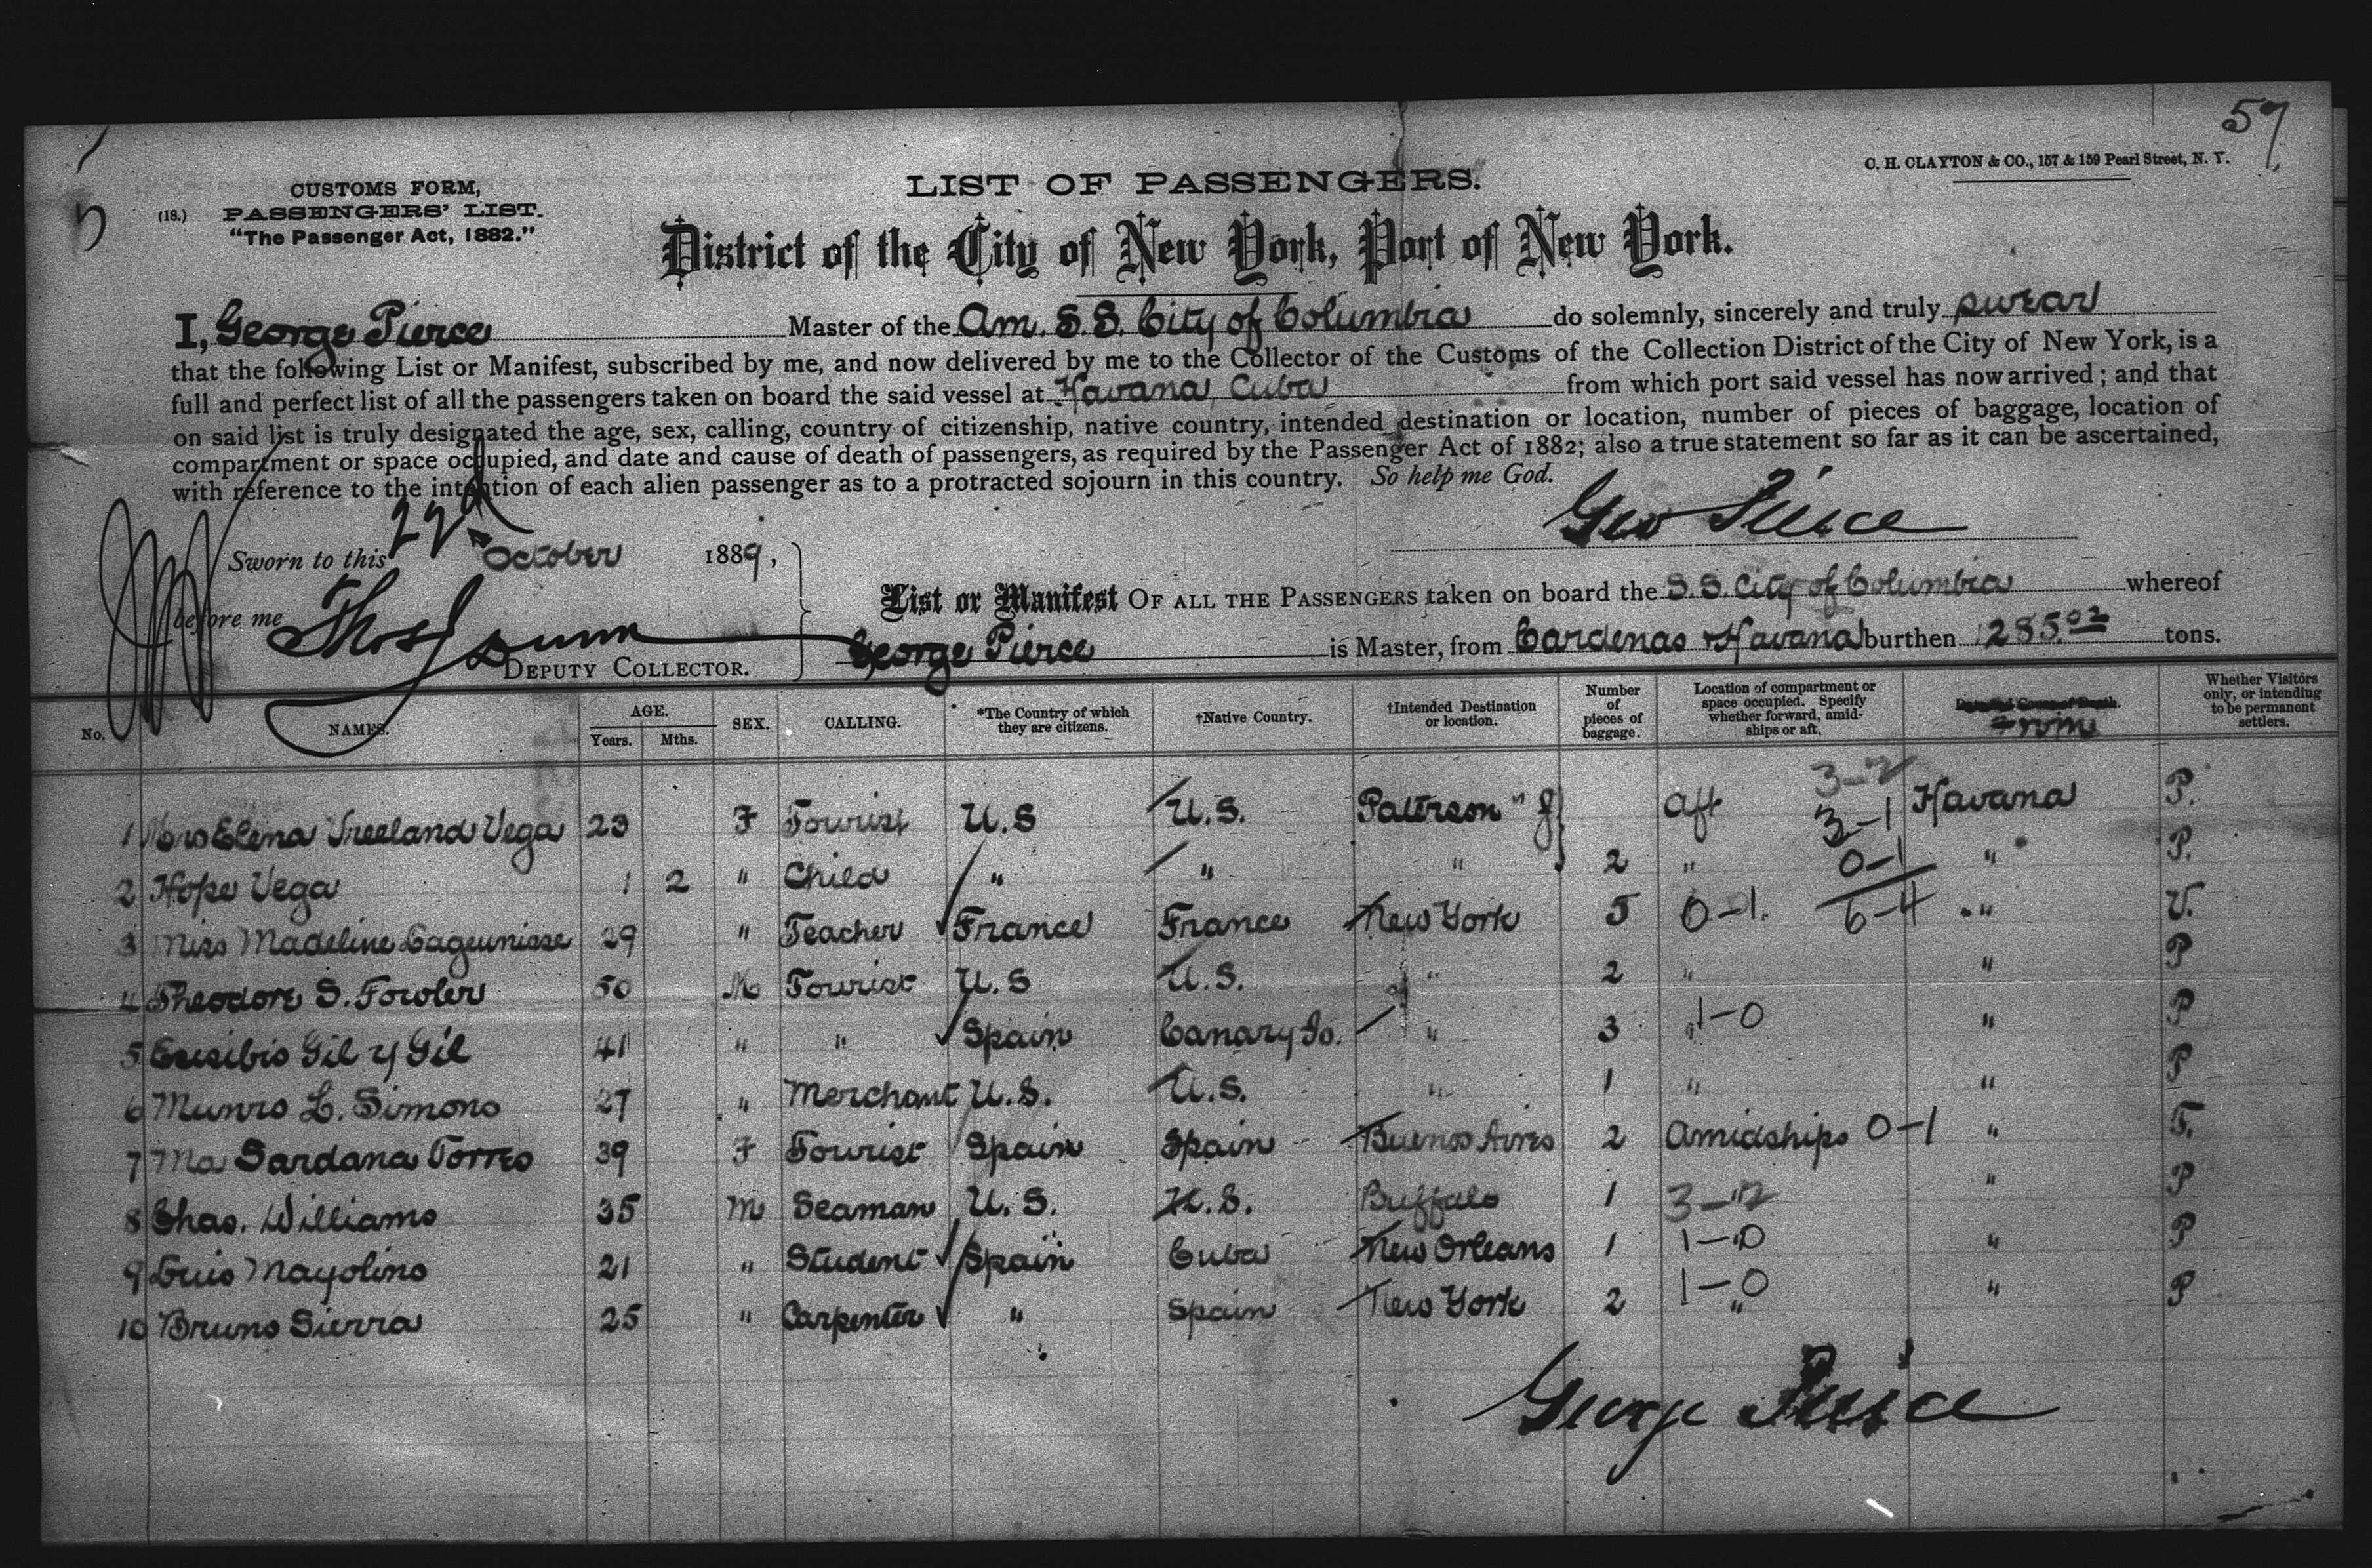 57
C. H. CLAYTON & CO., 157 & 159 Pearl Street, N. Y.
CUSTOMS FORM,
(18.) PASSENGERS' LIST.
"The Passenger Act, 1882."
LIST OF PASSENGERS.
District of the City of New York, Port of New York.
I, George Pierce Master of the Am. S.S. City of Columbia do solemnly, sincerely and truly swear
that the following List or Manifest, subscribed by me, and now delivered by me to the Collector of the Customs of the Collection District of the City of New York, is a
full and perfect list of all the passengers taken on board the said vessel at Havana, Cuba from which port said vessel has now arrived; and that
on said list is truly designated the age, sex, calling, country of citizenship, native country, intended destination or location, number of pieces of baggage, location of
compartment or space occupied, and date and cause of death of passengers, as required by the Passenger Act of 1882; also a true statement so far as it can be ascertained,
with reference to the intention of each alien passenger as to a protracted sojourn in this country. So help me God.
Geo Pierce
Sworn to this 22d October 1889,
before me Thos Dunn
DEPUTY COLLECTOR.
List or Manifest OF ALL THE PASSENGERS taken on board the S.S. City of Columbia whereof
George Pierce is Master, from Cardenas & Havana burthen 1285.02 tons.
No. NAMES. AGE. Years. Mths. SEX. CALLING. *The Country of which they are citizens. †Native Country. †Intended Destination or location. Number of pieces of baggage. Location of compartment or space occupied. Specify whether forward, amidships or aft. From Whether Visitors only, or intending to be permanent settlers.
3-2
1 Mrs Elena Vreeland Vega 23 F Tourist U.S U.S. Paterson " J aft 3-1 Havana P.
2 Hope Vega 1 2 " Child " " " 2 " 0-1 " P.
3 Miss Madeline 29 " Teacher France France New York 5 0-1. 6-4 " V.
4 Theodore S. Fowler 50 M Tourist U.S U.S. " 2 " " P
5 Eusibio Gil y Gil 41 " " Spain Canary Is. " 3 " 1-0 " P
6 Munro L. Simons 27 " Merchant U.S. U.S. " 1 " " P
7 Ma Sardana Torres 39 F Tourist Spain Spain Buenos Aires 2 Amidships 0-1 " T.
8 Chas. Williams 35 M Seaman U.S. U.S. Buffalo 1 3-2 " P
9 Luis Mayolino 21 " Student Spain Cuba New Orleans 1 1-0 " P
10 Bruno Sierra 25 " Carpenter " Spain New York 2 " 1-0 " P
George Pierce